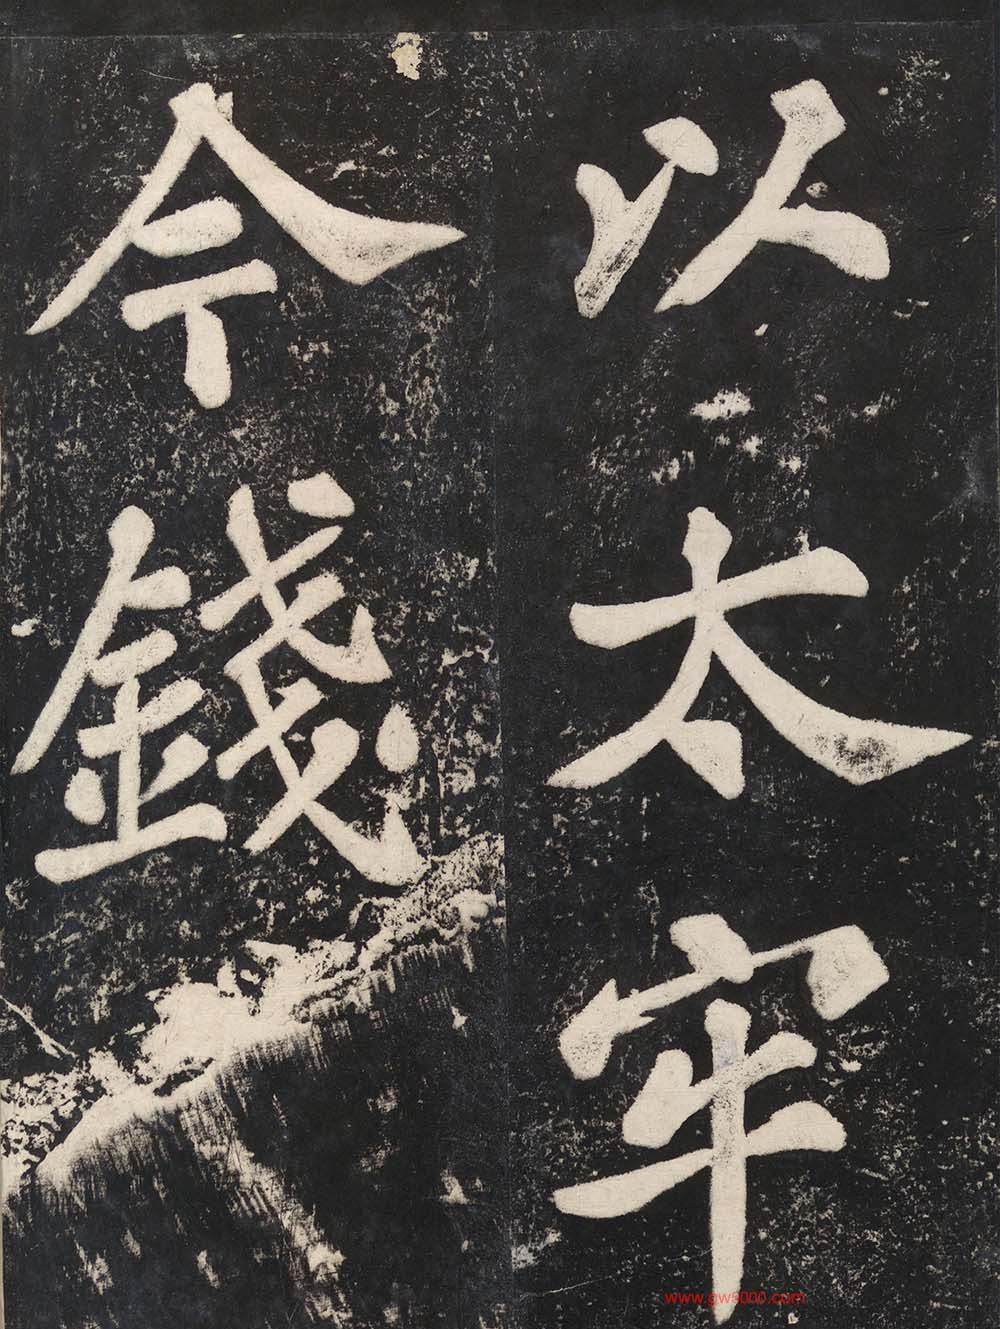 以太牢
今錢
www.gw5000.com